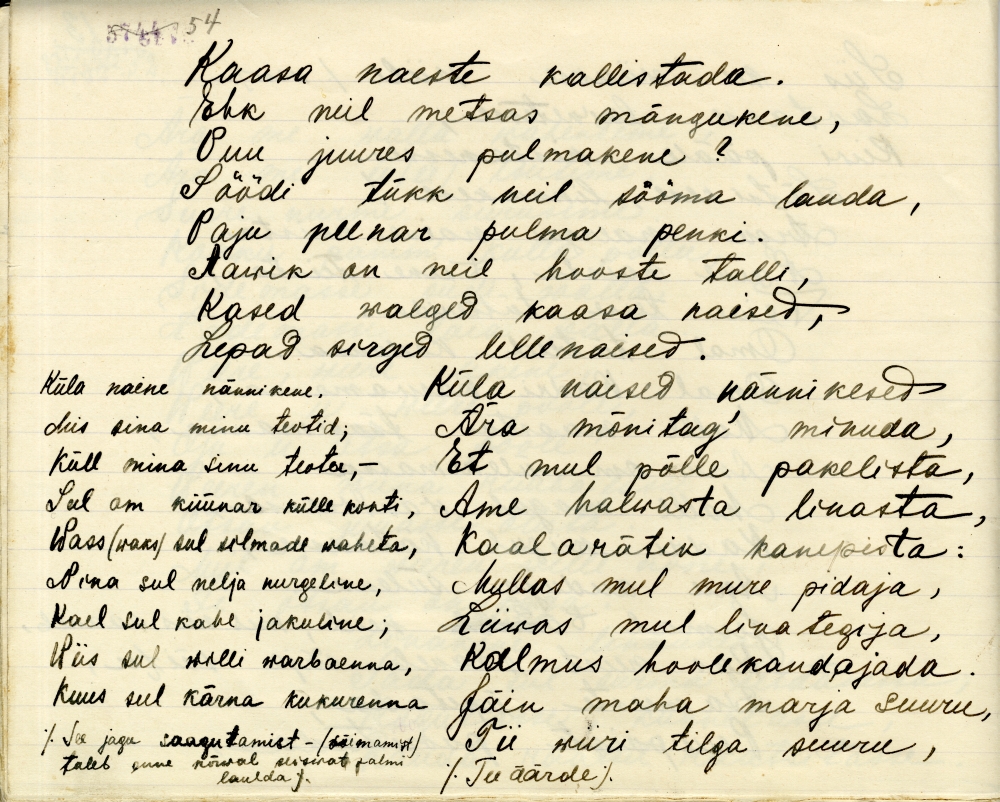 54
Kaasa naeste kallistada.
Ehk neil metsas mängukene,
Puu juures pulmakene?
Söödi tükk neil sööma lauda,
Paju peenar pulma penki.
Rawik on neil hooste talli,
Kased walged kaasa naised,
Lepad sirged lellenaised.
Küla naised nännikesed
Ära mõnitag' minuda,
Et mul põlle pakelista,
Ame halwasta linasta,
Kaalarätin kanepista:
Mullas mul mure pidaja,
Liiwas mul lina tegija,
Kalmus hoolekandajada.
Jäin maha marja suuru,
Tii wiiri tilga suuru,
/. Tee äärde /.
Küla naine nännikene.
Mis sina minu teotid;
Küll mina sinu teota,-
Sul om küünar külle konti,
Wass (waks) sul silmade waheta,
Nina sul nelja nurgeline,
Kael sul kahe jakuline;
Wiis sul willi warbaenna,
Kuus sul kärna kukurenna
/. See jagu saagutamist - (sõimamist)
tuleb enne kõwal seiswat salmi
laulda /.